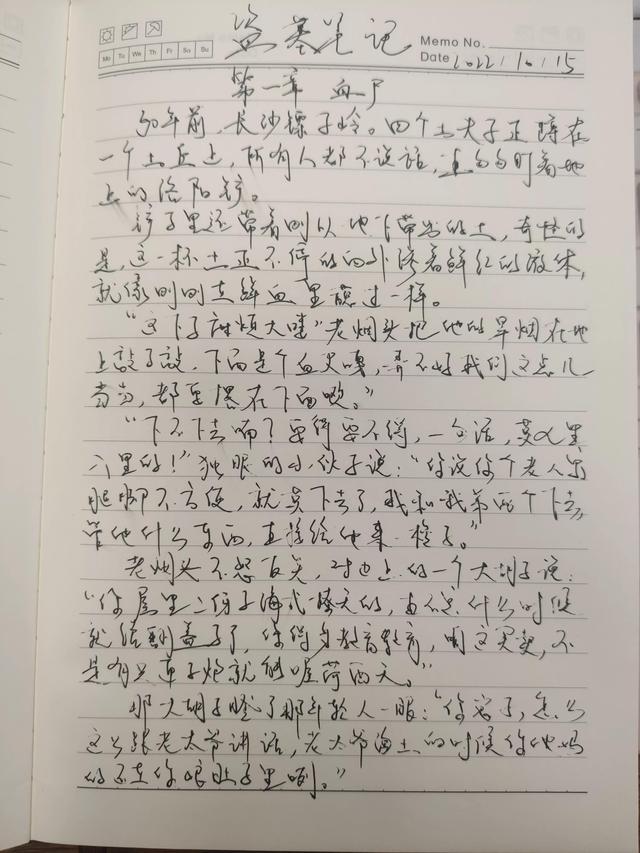 盗墓笔记
Memo No.
Mo Tu We Th Fr Sa Su
Date 2022 / 10 / 15
第一章 血尸
50年前,长沙镖子岭。四个土夫子正蹲在
一个土丘上,所有人都不说话,直勾勾盯着地
上的洛阳铲。
铲子里还带着刚从地下带出的土,奇怪的
是,这一杯土正不停的向外渗着鲜红的液体,
就像刚刚在鲜血里蘸过一样。
“这下子麻烦大喽”老烟头把他的旱烟在地
上敲了敲,下面是个血尸嘎,弄不好我们这点儿
当当,都要撂在下面咯。”
“下不下去喃?要得要不得,一句话,莫七里
八里的!”独眼的小伙子说:“你说你个老人家
腿脚不方便,就莫下去了,我和我弟两个下去,
管他什么东西,直接给他来一梭子。”
老烟头不怒反笑,对边上的一个大胡子说:
“你屋里二伢子海式撩天的,直不总什么时候
就给翻盖子了,你得多教育教育,咱这买卖,不
是有只匣子炮就能喔荷西天。”
那大胡子瞪了那年轻人一眼:“你崽子,怎么
这么跟老太爷讲话,老太爷淘土的时候你他妈
的还在你娘肚子里咧。”